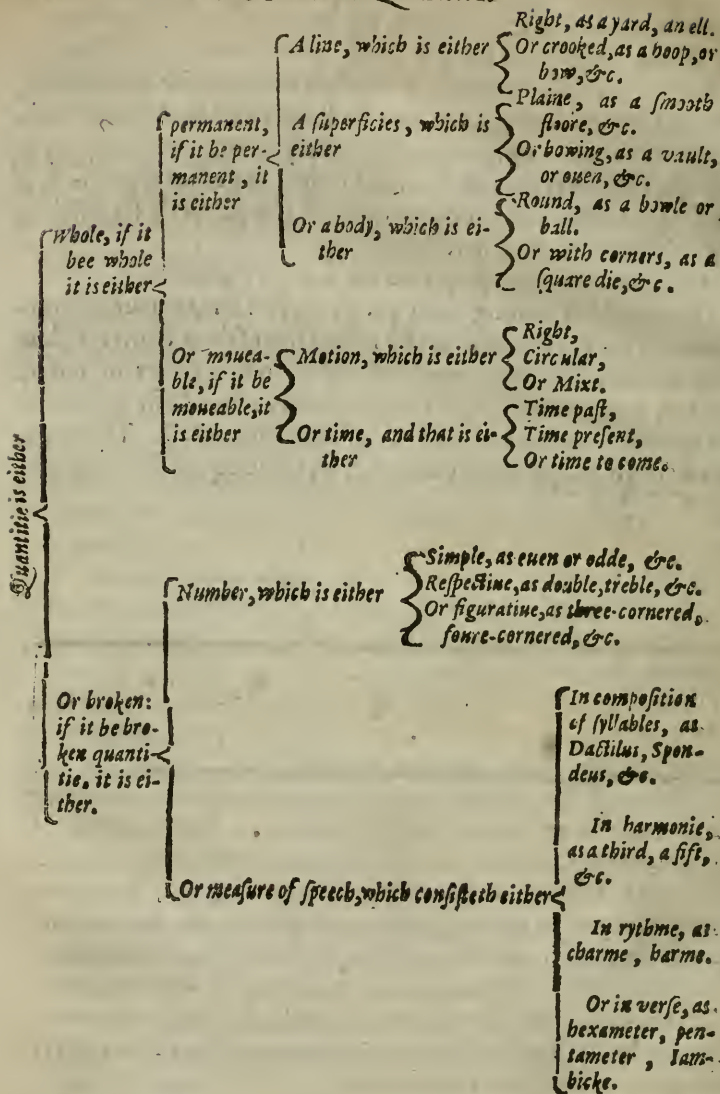 Quantitie is either
Whole, if it
bee whole
it is either
permanent,
if it be per-
manent, it
is either
A line, which is either
Right, as a yard, an ell.
Or crooked, as a hoop, or
bow, &c.
A ſuperficies, which is
either
Plaine, as a ſmooth
floore, &c.
Or bowing, as a vault,
or ouen, &c.
Or a body, which is ei-
ther
Round, as a bowle or
ball.
Or with corners, as a
ſquare die, &c.
Or mouea-
ble, if it be
moueable, it
is either
Motion, which is either
Right,
Circular,
Or Mixt.
Or time, and that is ei-
ther
Time paſt,
Time preſent,
Or time to come.
Or broken:
if it be bro-
ken quanti-
tie, it is ei-
ther.
Number, which is either
Simple, as euen or odde, &c.
Reſpectiue, as double, treble, &c.
Or figuratiue, as three-cornered,
foure-cornered, &c.
Or meaſure of ſpeech, which conſiſteth either
In compoſition
of ſyllables, as
Dactilus, Spon-
deus, &c.
In harmonie,
as a third, a fift,
&c.
In rythme, as
charme, harme.
Or in verſe, as
hexameter, pen-
tameter, Iam-
bicke.